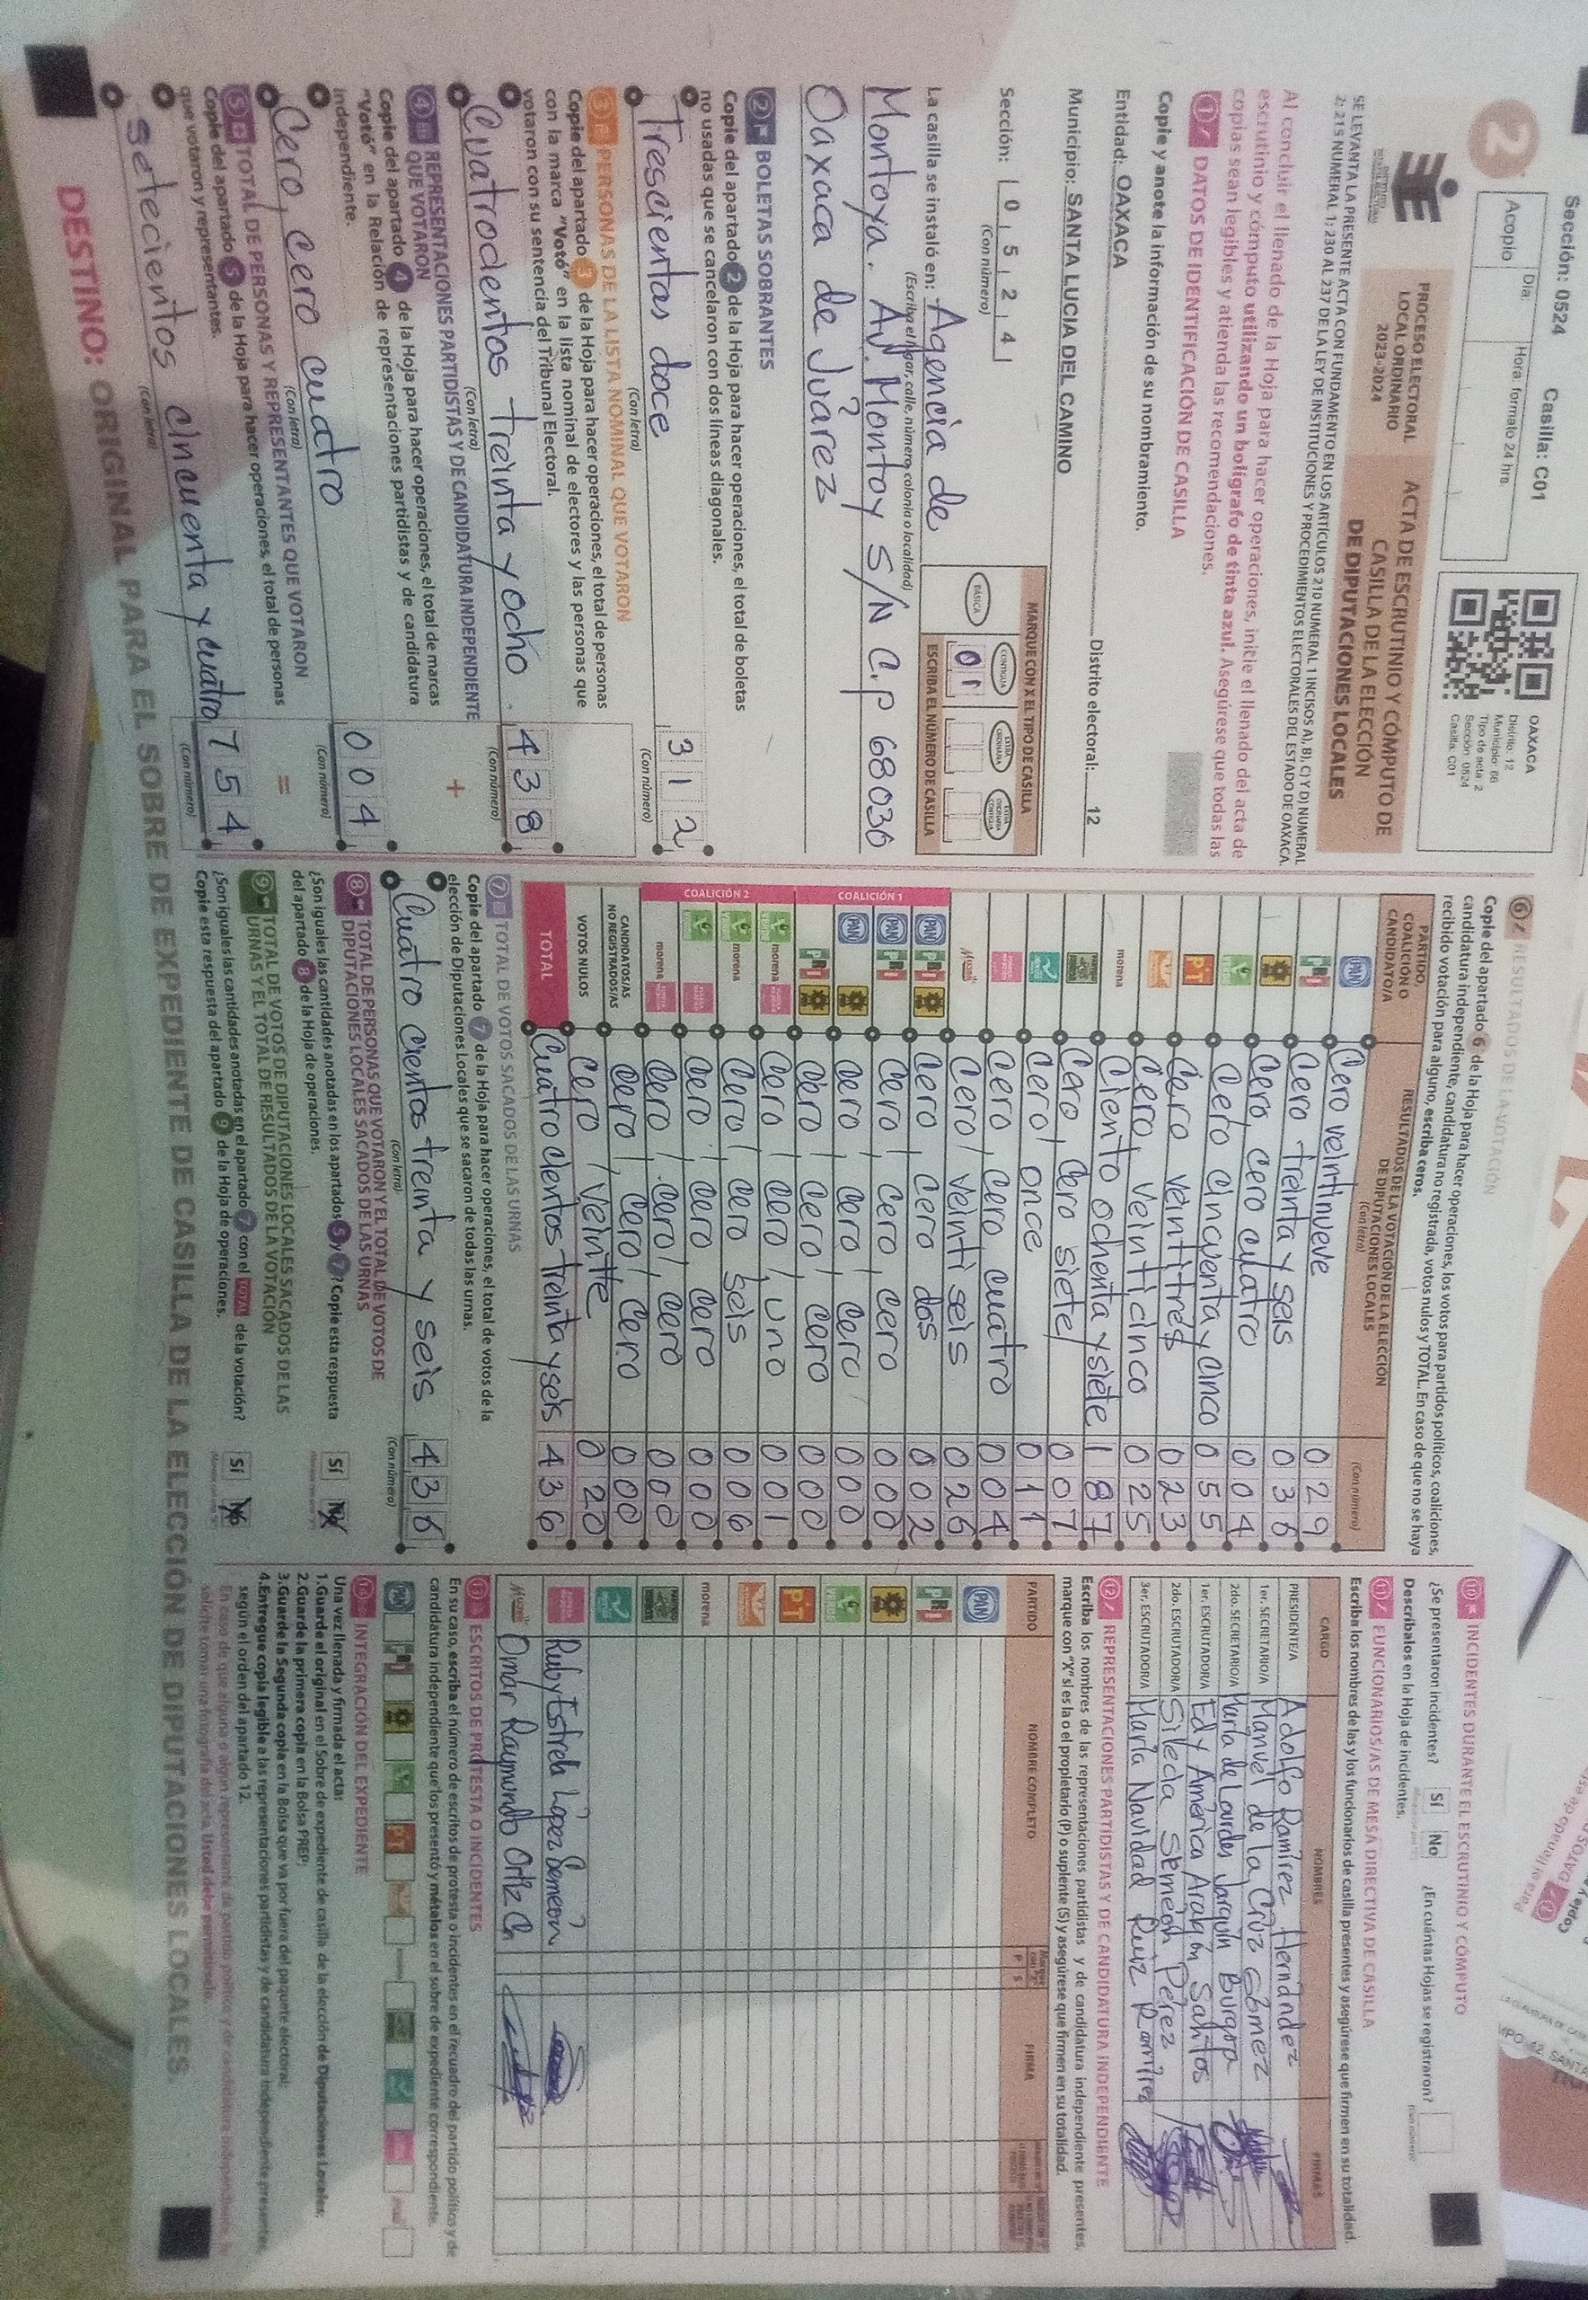 Sección: 0524 Casilla: C01
2
Acopio
Día:
Hora: formato 24 hrs.
OAXACA
Distrito: 12
Municipio: 66
Tipo de acta: 2
Sección: 0524
Casilla: C01
PROCESO ELECTORAL
LOCAL ORDINARIO
2023-2024
ACTA DE ESCRUTINIO Y CÓMPUTO DE
CASILLA DE LA ELECCIÓN
DE DIPUTACIONES LOCALES
SE LEVANTA LA PRESENTE ACTA CON FUNDAMENTO EN LOS ARTÍCULOS 210 NUMERAL 1 INCISOS A), B), C) Y D) NUMERAL
2; 215 NUMERAL 1); 230 AL 237 DE LA LEY DE INSTITUCIONES Y PROCEDIMIENTOS ELECTORALES DEL ESTADO DE OAXACA.
Al concluir el llenado de la Hoja para hacer operaciones, inicie el llenado del acta de
escrutinio y cómputo utilizando un bolígrafo de tinta azul. Asegúrese que todas las
copias sean legibles y atienda las recomendaciones.
1 DATOS DE IDENTIFICACIÓN DE CASILLA
Copie y anote la información de su nombramiento.
Entidad: OAXACA Distrito electoral: 12
Municipio: SANTA LUCIA DEL CAMINO
Sección: 0 5 2 4
(Con número)
MARQUE CON X EL TIPO DE CASILLA
BÁSICA
CONTIGUA
EXTRA
ORDINARIA
EXTRA
ORDINARIA
CONTIGUA
01
ESCRIBA EL NÚMERO DE CASILLA
La casilla se instaló en: Agencia de
(Escriba el lugar, calle, número, colonia o localidad)
Montoya. Av. Montoy S/N C.P 68030
Oaxaca de Juárez
2 BOLETAS SOBRANTES
Copie del apartado 2 de la Hoja para hacer operaciones, el total de boletas
no usadas que se cancelaron con dos líneas diagonales.
Trescientas doce 3 1 2
(Con letra) (Con número)
3 PERSONAS DE LA LISTA NOMINAL QUE VOTARON
Copie del apartado 3 de la Hoja para hacer operaciones, el total de personas
con la marca "Votó" en la lista nominal de electores y las personas que
votaron con su sentencia del Tribunal Electoral.
Cuatrocientos treinta y ocho 4 3 8
(Con letra) (Con número)
4 REPRESENTACIONES PARTIDISTAS Y DE CANDIDATURA INDEPENDIENTE
QUE VOTARON +
Copie del apartado 4 de la Hoja para hacer operaciones, el total de marcas
"Votó" en la Relación de representaciones partidistas y de candidatura
independiente.
Cero, cero cuatro 0 0 4
(Con letra) (Con número)
5 TOTAL DE PERSONAS Y REPRESENTANTES QUE VOTARON =
Copie del apartado 5 de la Hoja para hacer operaciones, el total de personas
que votaron y representantes.
Setecientos cincuenta y cuatro 7 5 4
(Con letra) (Con número)
6 RESULTADOS DE LA VOTACIÓN
Copie del apartado 6 de la Hoja para hacer operaciones, los votos para partidos políticos, coaliciones,
candidatura independiente, candidatura no registrada, votos nulos y TOTAL. En caso de que no se haya
recibido votación para alguno, escriba ceros.
PARTIDO,
COALICIÓN O
CANDIDATO/A
RESULTADOS DE LA VOTACIÓN DE LA ELECCIÓN
DE DIPUTACIONES LOCALES
(Con letra)
(Con número)
PAN Cero veintinueve 0 2 9
PRI Cero treinta y seis 0 3 6
Cero, cero cuatro 0 0 4
VERDE Cero cincuenta y cinco 0 5 5
PT Cero veintitres 0 2 3
Cero, veinticinco 0 2 5
morena Ciento ochenta y siete 1 8 7
Cero, cero siete 0 0 7
Cero, once 0 1 1
Cero, cero, cuatro 0 0 4
Cero, veintiseis 0 2 6
COALICIÓN 1
PAN PRI Cero, cero dos 0 0 2
PAN PRI Cero, cero, cero 0 0 0
PAN Cero, cero, cero 0 0 0
PRI Cero, cero, cero 0 0 0
COALICIÓN 2
VERDE morena Cero, cero, uno 0 0 1
VERDE morena Cero, cero seis 0 0 6
VERDE Cero, cero, cero 0 0 0
morena Cero, cero, cero 0 0 0
CANDIDATOS/AS
NO REGISTRADOS/AS Cero, cero, cero 0 0 0
VOTOS NULOS Cero, veinte 0 2 0
TOTAL Cuatro cientos treinta y seis 4 3 6
7 TOTAL DE VOTOS SACADOS DE LAS URNAS
Copie del apartado 7 de la Hoja para hacer operaciones, el total de votos de la
elección de Diputaciones Locales que se sacaron de todas las urnas.
Cuatro cientos treinta y seis 4 3 6
(Con letra) (Con número)
8 TOTAL DE PERSONAS QUE VOTARON Y EL TOTAL DE VOTOS DE
DIPUTACIONES LOCALES SACADOS DE LAS URNAS
¿Son iguales las cantidades anotadas en los apartados 5 y 7? Copie esta respuesta
del apartado 8 de la Hoja de operaciones.
Sí No
9 TOTAL DE VOTOS DE DIPUTACIONES LOCALES SACADOS DE LAS
URNAS Y EL TOTAL DE RESULTADOS DE LA VOTACIÓN
¿Son iguales las cantidades anotadas en el apartado 7 con el TOTAL de la votación?
Copie esta respuesta del apartado 9 de la Hoja de operaciones.
Sí No
10 INCIDENTES DURANTE EL ESCRUTINIO Y CÓMPUTO
¿Se presentaron incidentes? Sí No ¿En cuántas Hojas se registraron?
Descríbalos en la Hoja de incidentes.
11 FUNCIONARIOS/AS DE MESA DIRECTIVA DE CASILLA
Escriba los nombres de las y los funcionarios de casilla presentes y asegúrese que firmen en su totalidad.
CARGO NOMBRES FIRMAS
PRESIDENTE/A Adolfo Ramirez Hernández
1er. SECRETARIO/A Manuel de la Cruz Gómez
2do. SECRETARIO/A María de Lourdes Jarquín Burgoa
1er. ESCRUTADOR/A Edy América Aragón Santos
2do. ESCRUTADOR/A Sileda Simeón Pérez
3er. ESCRUTADOR/A María Navidad Ruiz Ramírez
12 REPRESENTACIONES PARTIDISTAS Y DE CANDIDATURA INDEPENDIENTE
Escriba los nombres de las representaciones partidistas y de candidatura independiente presentes,
marque con "X" si es la o el propietario (P) o suplente (S) y asegúrese que firmen en su totalidad.
PARTIDO NOMBRE COMPLETO P S FIRMA
PAN
PRI
VERDE
PT
morena
Ruby Estrela López Semeon
Omar Raymundo Ortiz Ch
13 ESCRITOS DE PROTESTA O INCIDENTES
En su caso, escriba el número de escritos de protesta o incidentes en el recuadro del partido político y de
candidatura independiente que los presentó y métalos en el sobre de expediente correspondiente.
INTEGRACIÓN DEL EXPEDIENTE
Una vez llenada y firmada el acta:
1.Guarde el original en el Sobre de expediente de casilla de la elección de Diputaciones Locales;
2.Guarde la primera copia en la Bolsa PREP;
3.Guarde la Segunda copia en la Bolsa que va por fuera del paquete electoral;
4.Entregue copia legible a las representaciones partidistas y de candidatura independiente presentes,
según el orden del apartado 12.
DESTINO: ORIGINAL PARA EL SOBRE DE EXPEDIENTE DE CASILLA DE LA ELECCIÓN DE DIPUTACIONES LOCALES.